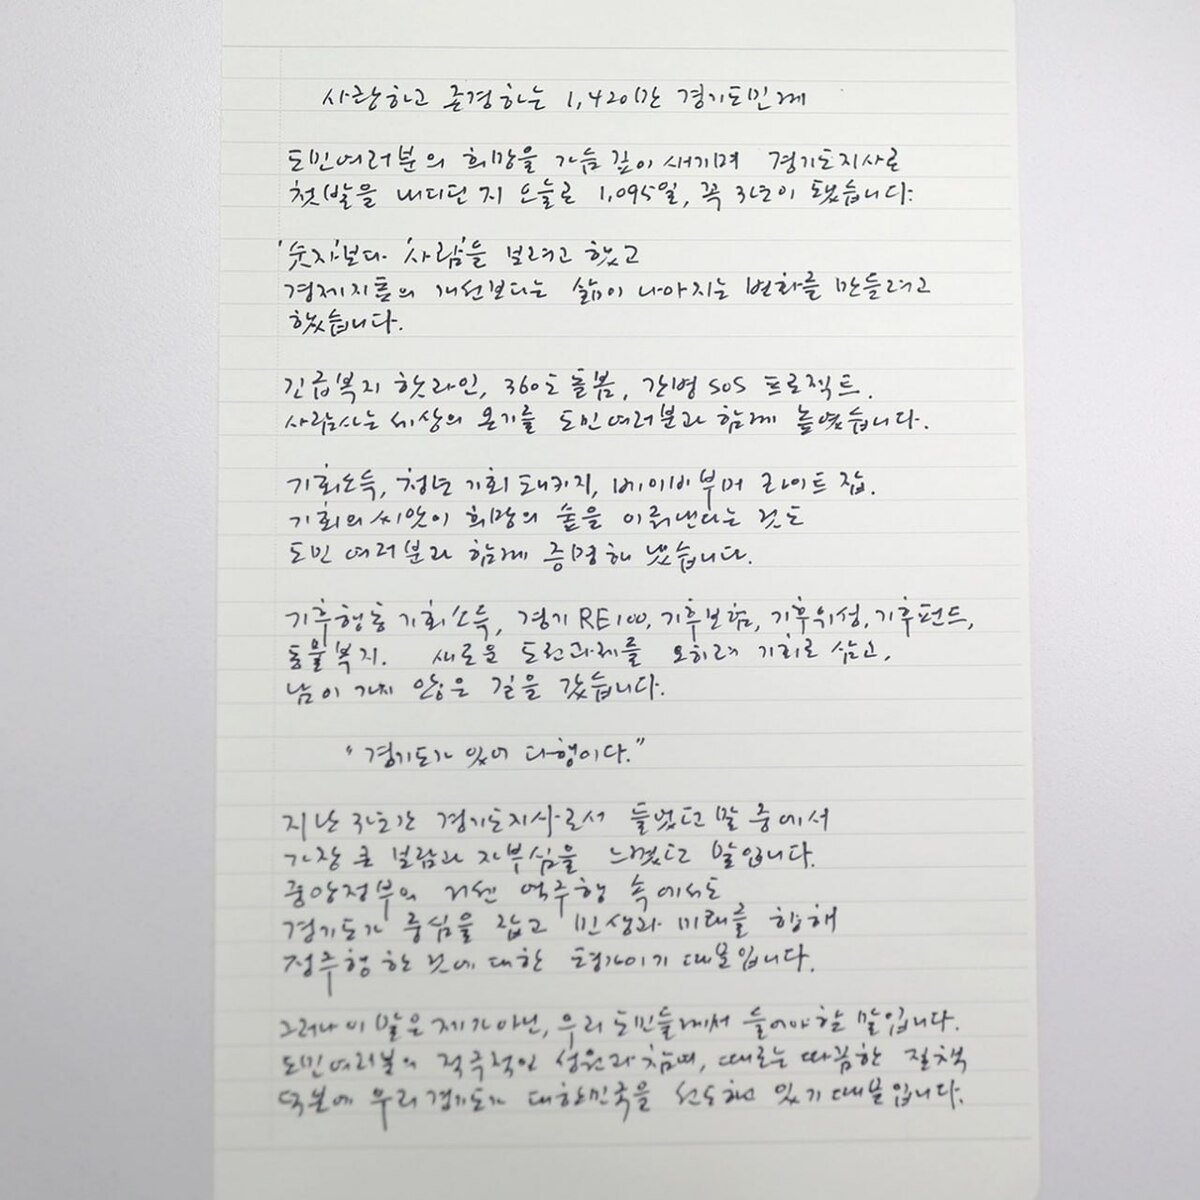 사랑하고 존경하는 1,420만 경기도민께
도민여러분의 희망을 가슴 깊이 새기며 경기도지사로
첫발을 내디딘 지 오늘로 1,095일, 꼭 3년이 됐습니다.
'숫자'보다 '사람'을 보려고 했고
경제지표의 개선보다는 삶이 나아지는 변화를 만들려고
했습니다.
긴급복지 핫라인, 360도 돌봄, 간병 SOS 프로젝트.
사람사는 세상의 온기를 도민여러분과 함께 높였습니다.
기회소득, 청년 기회 패키지, 베이비부머 라이트 잡.
기회의 씨앗이 희망의 숲을 이뤄낸다는 것도
도민 여러분과 함께 증명해 냈습니다.
기후행동 기회소득, 경기 RE100, 기후보험, 기후위성, 기후펀드,
동물복지. 새로운 도전과제를 오히려 기회로 삼고,
남이 가지 않은 길을 갔습니다.
"경기도가 있어 다행이다."
지난 3년간 경기도지사로서 들었던 말 중에서
가장 큰 보람과 자부심을 느꼈던 말입니다.
중앙정부의 거센 역주행 속에서도
경기도가 중심을 잡고 민생과 미래를 향해
정주행 한 것에 대한 평가이기 때문입니다.
그러나 이 말은 제가 아닌, 우리 도민들께서 들어야할 말입니다.
도민여러분의 적극적인 성원과 참여, 때로는 따끔한 질책
덕분에 우리 경기도가 대한민국을 선도하고 있기 때문입니다.